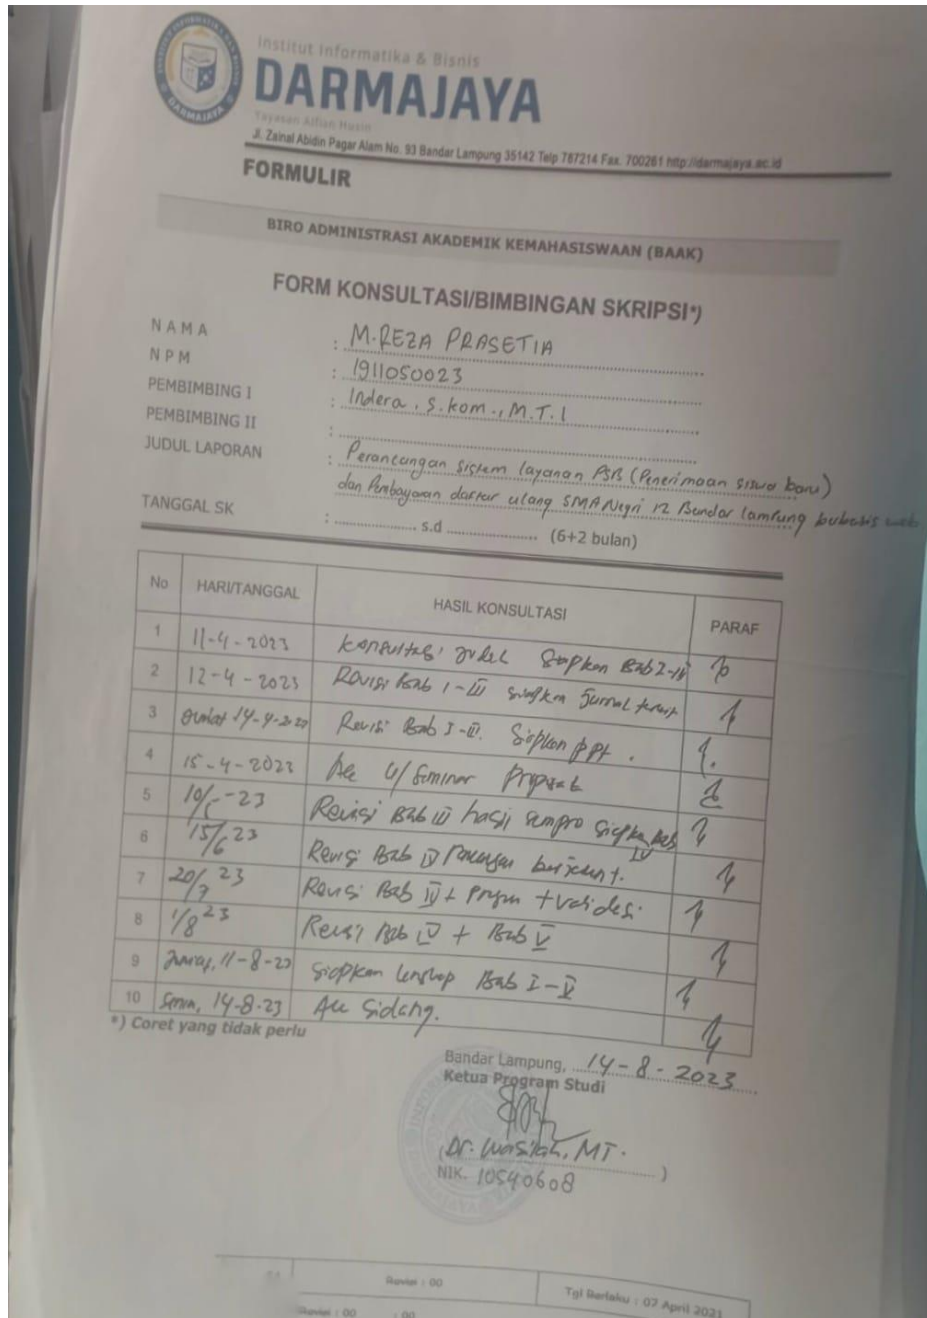 Institut Informatika & Bisnis
DARMAJAYA
Yayasan Alfian Husin
Jl. Zainal Abidin Pagar Alam No. 93 Bandar Lampung 35142 Telp 787214 Fax. 700261 http://darmajaya.ac.id
FORMULIR
BIRO ADMINISTRASI AKADEMIK KEMAHASISWAAN (BAAK)
FORM KONSULTASI/BIMBINGAN SKRIPSI*)
NAMA : M. REZA PRASETIA
NPM : 1911050023
PEMBIMBING I : Indera, S.kom., M.T.I
PEMBIMBING II :
JUDUL LAPORAN : Perancangan sistem layanan PSB (Penerimaan siswa baru)
dan Pembayaran daftar ulang SMA Negri 12 Bandar lampung berbasis web
TANGGAL SK : .................... s.d .................... (6+2 bulan)
No HARI/TANGGAL HASIL KONSULTASI PARAF
1 11-4-2023 Konsultasi judul Siapkan Bab I-III
2 12-4-2023 Revisi Bab I-III siapkan Jurnal terkait
3 Jumat 14-4-2023 Revisi Bab I-III. Siapkan ppt.
4 15-4-2023 Acc u/ Seminar Proposal
5 10/ -23 Revisi Bab III hasil sempro siapkan bab IV
6 15/6 23 Revisi Bab IV
7 20/7 23 Revisi Bab IV + Program + validasi
8 1/8 23 Revisi Bab IV + Bab V
9 Jumat, 11-8-23 Siapkan lengkap Bab I-V
10 Senin, 14-8-23 Acc Sidang.
*) Coret yang tidak perlu
Bandar Lampung, 14-8-2023
Ketua Program Studi
(Dr. Wasilah, MT. )
NIK. 10540608
Revisi : 00
Tgl Berlaku : 07 April 2021
Revisi : 00 : 00